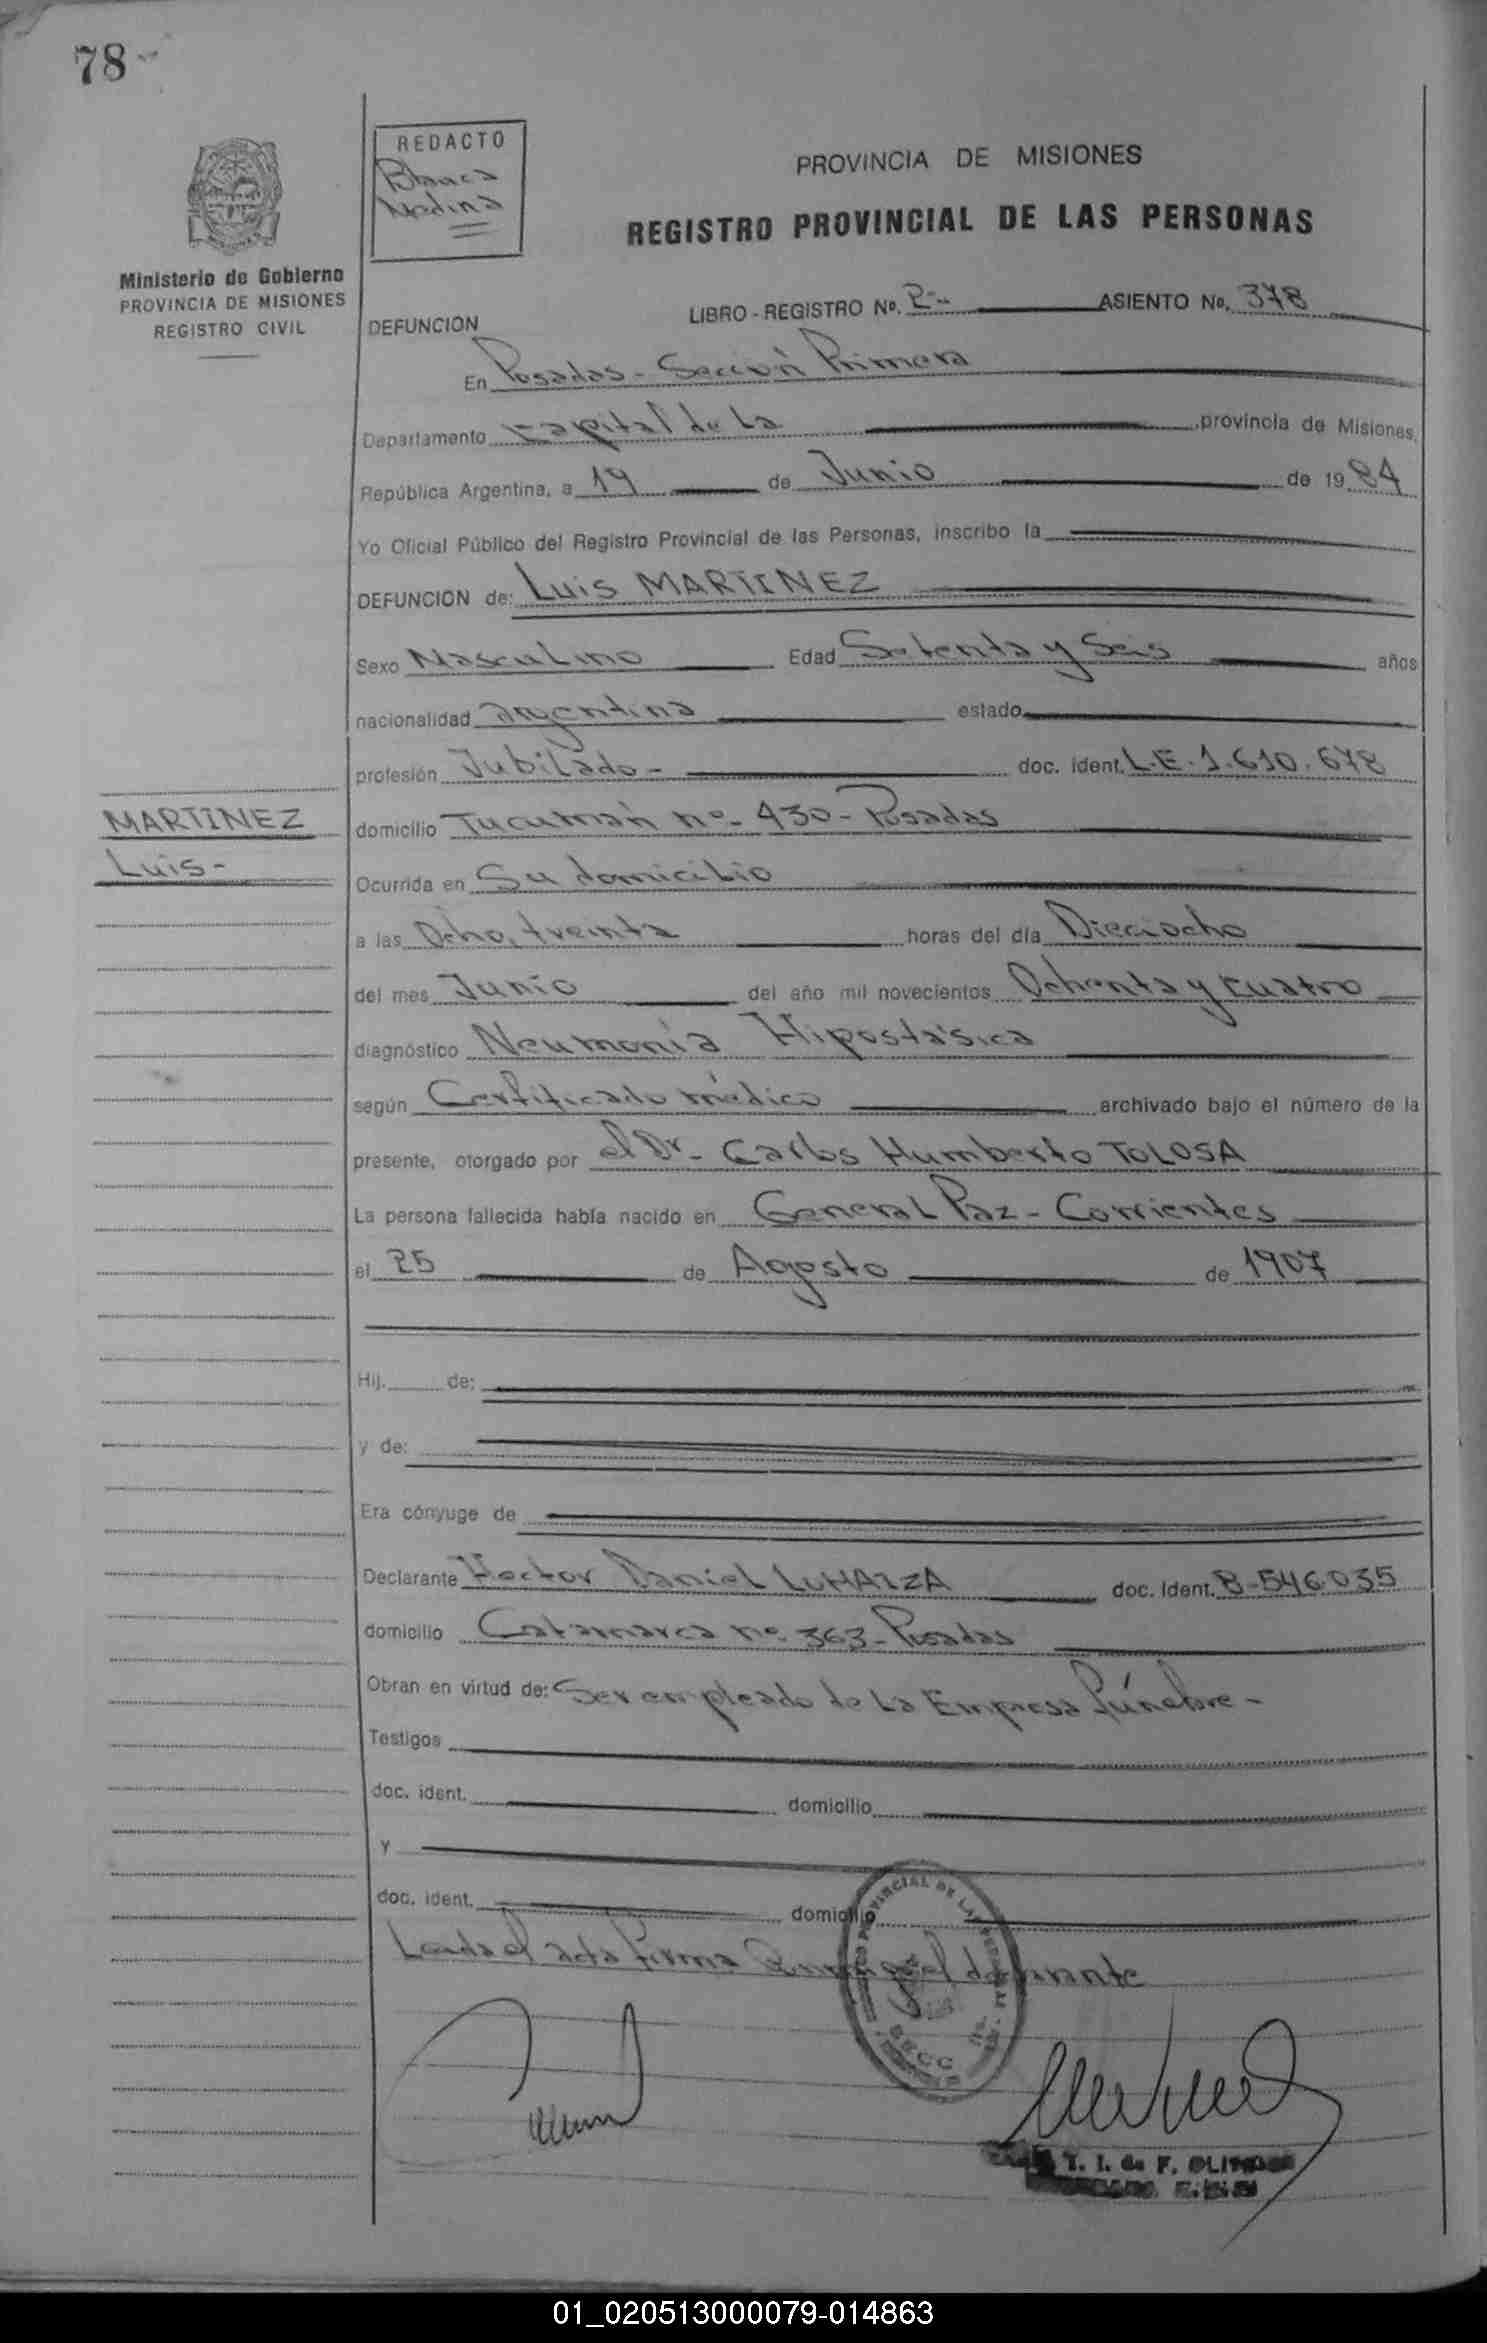 78-
REDACTO
Blanca
Medina
Ministerio de Gobierno
PROVINCIA DE MISIONES
REGISTRO CIVIL
PROVINCIA DE MISIONES
REGISTRO PROVINCIAL DE LAS PERSONAS
DEFUNCION LIBRO - REGISTRO No. 2- ASIENTO No. 378
En Posadas - Sección Primera
Departamento Capital de La provincia de Misiones,
República Argentina, a 19 de Junio de 1984
Yo Oficial Público del Registro Provincial de las Personas, inscribo la
DEFUNCION de: Luis MARTINEZ
Sexo Masculino Edad Setenta y Seis años
nacionalidad argentina estado
profesión Jubilado - doc. ident. L.E. 1.610.678
MARTINEZ
Luis-
domicilio Tucumán nº 430 - Posadas
Ocurrida en Su domicilio
a las Ocho, treinta horas del día Dieciocho
del mes Junio del año mil novecientos Ochenta y cuatro
diagnóstico Neumonía Hipostásica
según Certificado médico archivado bajo el número de la
presente, otorgado por el Dr. Carlos Humberto TOLOSA
La persona fallecida había nacido en General Paz - Corrientes
el 25 de Agosto de 1907
Hij. de:
y de:
Era cónyuge de
Declarante Hector Daniel doc. Ident. 8-546.035
domicilio Catamarca nº 363 - Posadas
Obran en virtud de: Ser empleado de La Empresa fúnebre -
Testigos
doc. ident. domicilio
y
doc. ident. domicilio
Leida el acta firma el
T. I. de F.
01_020513000079-014863